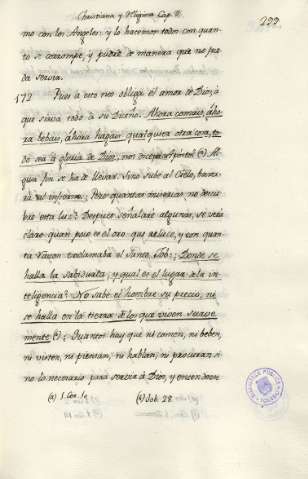 Christiana y Religiosa Cap. II.
222
mo con los Angeles: y lo hacemos todo con quan-
to se corrompe, y pudre de manera que no pue
da servir.
172 Pues à esto nos obliga el amor de Dios, à
que sirva todo de su Divino. Ahora comais, aho-
ra bebais, ahora hagais qualquiera otra cosa, to-
do sea la gloria de Dios, nos dice el Apostol (a) Al
que fin se ha de llevar. Sino sube al Cielo, baxa-
rà al infierno. Pero quantas invierias, no descu-
bre esta luz? Despues señalarè algunas, se verà
claro quan poco es el oro que reluce, y con quan-
ta razon exclamaba el Santo Job: Donde se
halla la sabiduria, y qual es el lugar de la in-
teligencia? No sabe el hombre su precio, ni
se halla en la tierra de los que viven suave
mente (b) Quantos hay que ni comen, ni beben,
ni visten, ni piensan, ni hablan, ni procuran si
no lo necesario para servir à Dios, y encienden
(a) 1. Cor. 1.
(b) Job. 28.